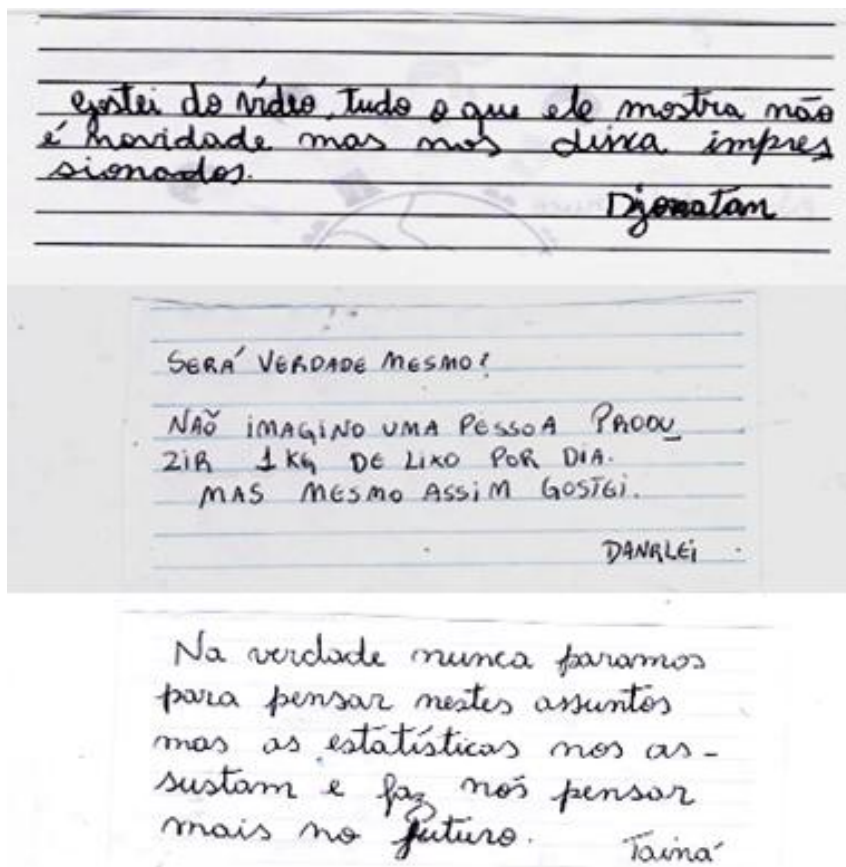 Gostei do vídeo, tudo o que ele mostra não
é novidade mas nos deixa impres
sionados.
Djonatan
SERÁ VERDADE MESMO?
NÃO IMAGINO UMA PESSOA PRODU_
ZIR 1 KG DE LIXO POR DIA.
MAS MESMO ASSIM GOSTEI.
DANRLEI
Na verdade nunca paramos
para pensar nestes assuntos
mas as estatísticas nos as-
sustam e faz nós pensar
mais no futuro.
Tainá